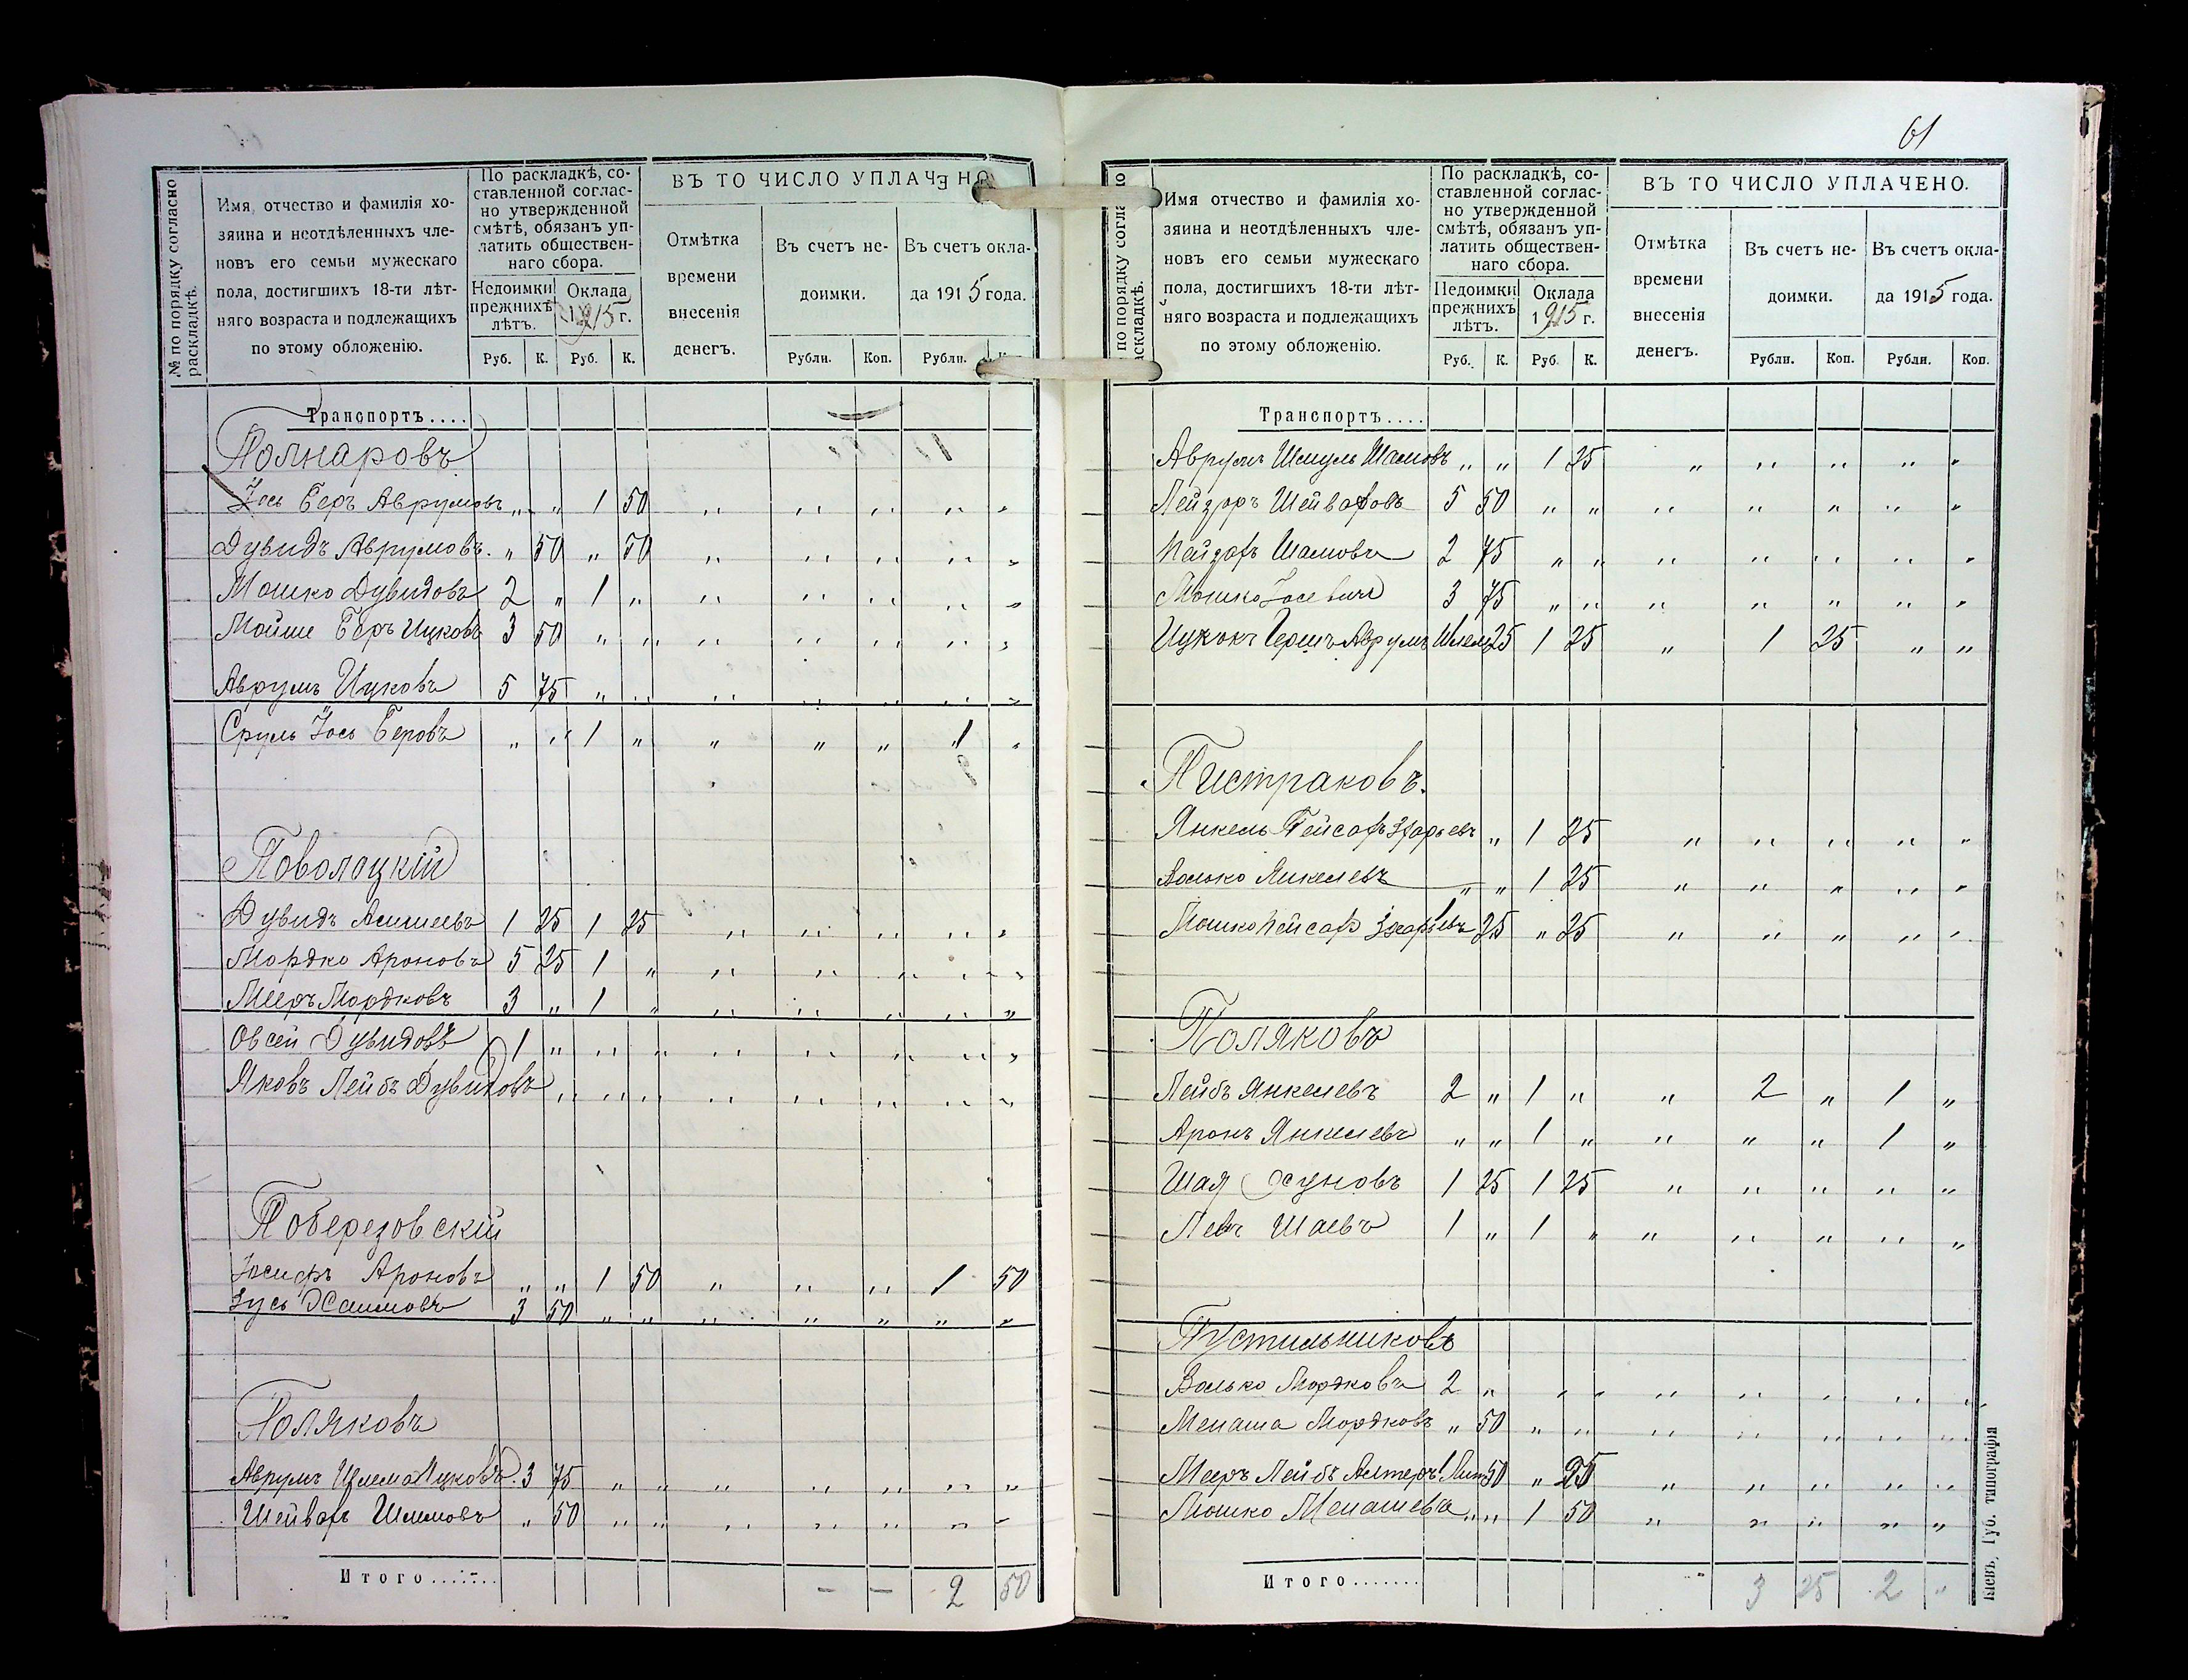 № по порядку согласно раскладкѣ.
Имя, отчество и фамилія хо-
зяина и неотдѣленныхъ чле-
новъ его семьи мужескаго
пола, достигшихъ 18-ти лѣт-
няго возраста и подлежащихъ
по этому обложенію.
По раскладкѣ, со-
ставленной соглас-
но утвержденной
смѣтѣ, обязанъ уп-
латить обществен-
наго сбора.
Недоимки
прежнихъ
лѣтъ.
Оклада
1915 г.
Руб. К. Руб. К.
ВЪ ТО ЧИСЛО УПЛАЧЕНО
Отмѣтка
времени
внесенія
денегъ.
Въ счетъ не-
доимки.
Въ счетъ окла-
да 1915 года.
Рубли. Коп. Рубли.
Транспортъ....
Полнаровъ
Іось Беръ Аврумовъ " " 1 50 " " " " "
Дувидъ Аврумовъ. " 50 " 50 " " " " "
Мошко Дувидовъ 2 " 1 " " " " " "
Мойше Беръ Ицковъ 3 50 " " " " " " "
Аврумъ Ицковъ 5 75 " " " " " " "
Сруль Іось Беровъ " " 1 " " " " 1 "
Поволоцкій
Дувидъ 1 25 1 25 " " " " "
Мордко Ароновъ 5 25 1 " " " " " "
Мееръ Мордковъ 3 " 1 " " " " " "
Овсей Дувидовъ 1 " " " " " " " "
Яковъ Лейбъ Дувидовъ " " " " " " " "
Поберезовскій
Іосифъ Ароновъ " " 1 50 " " " 1 50
Зусь Хаимовъ 3 50 " " " " " " "
Поляковъ
Аврумъ Шлема Ицковъ. 3 75 " " " " " " "
Шейвахъ Шлемовъ " 50 " " " " " " "
Итого....... — — 2 50
61
по порядку согла
Имя отчество и фамилія хо-
зяина и неотдѣленныхъ чле-
новъ его семьи мужескаго
пола, достигшихъ 18-ти лѣт-
няго возраста и подлежащихъ
по этому обложенію.
По раскладкѣ, со-
ставленной соглас-
но утвержденной
смѣтѣ, обязанъ уп-
латить обществен-
наго сбора.
Недоимки
прежнихъ
лѣтъ.
Оклада
1915 г.
Руб. К. Руб. К.
ВЪ ТО ЧИСЛО УПЛАЧЕНО.
Отмѣтка
времени
внесенія
денегъ.
Въ счетъ не-
доимки.
Въ счетъ окла-
да 1915 года.
Рубли. Коп. Рубли. Коп.
Транспортъ....
Аврумъ Шмуль " " 1 25 " " " " "
Лейзоръ Шейваховъ 5 50 " " " " " " "
2 75 " " " " " " "
Мошко Іосевичъ 3 75 " " " " " " "
Ицкокъ Гершъ Аврумъ 25 1 25 " 1 25 " "
Пистраковъ.
Янкель Пейсахъ " 1 25 " " " " "
Волько Янкелевъ " " 1 25 " " " " "
Мошко Пейсах 25 " 25 " " " " "
Поляковъ
Лейбъ Янкелевъ 2 " 1 " " 2 " 1 "
Аронъ Янкелевъ " " 1 " " " " 1 "
Шая 1 25 1 25 " " " " "
Левъ Шаевъ 1 " 1 " " " " " "
Пустильниковъ
Волько Мордковъ 2 " " " " " " " "
Менаша Мордковъ " 50 " " " " " " "
Мееръ Лейбъ Алтеръ 50 " 25 " " " " "
Мошко Менашевъ " " 1 50 " " " " "
Итого....... 3 25 2 "
Кіевъ, Губ. типографія